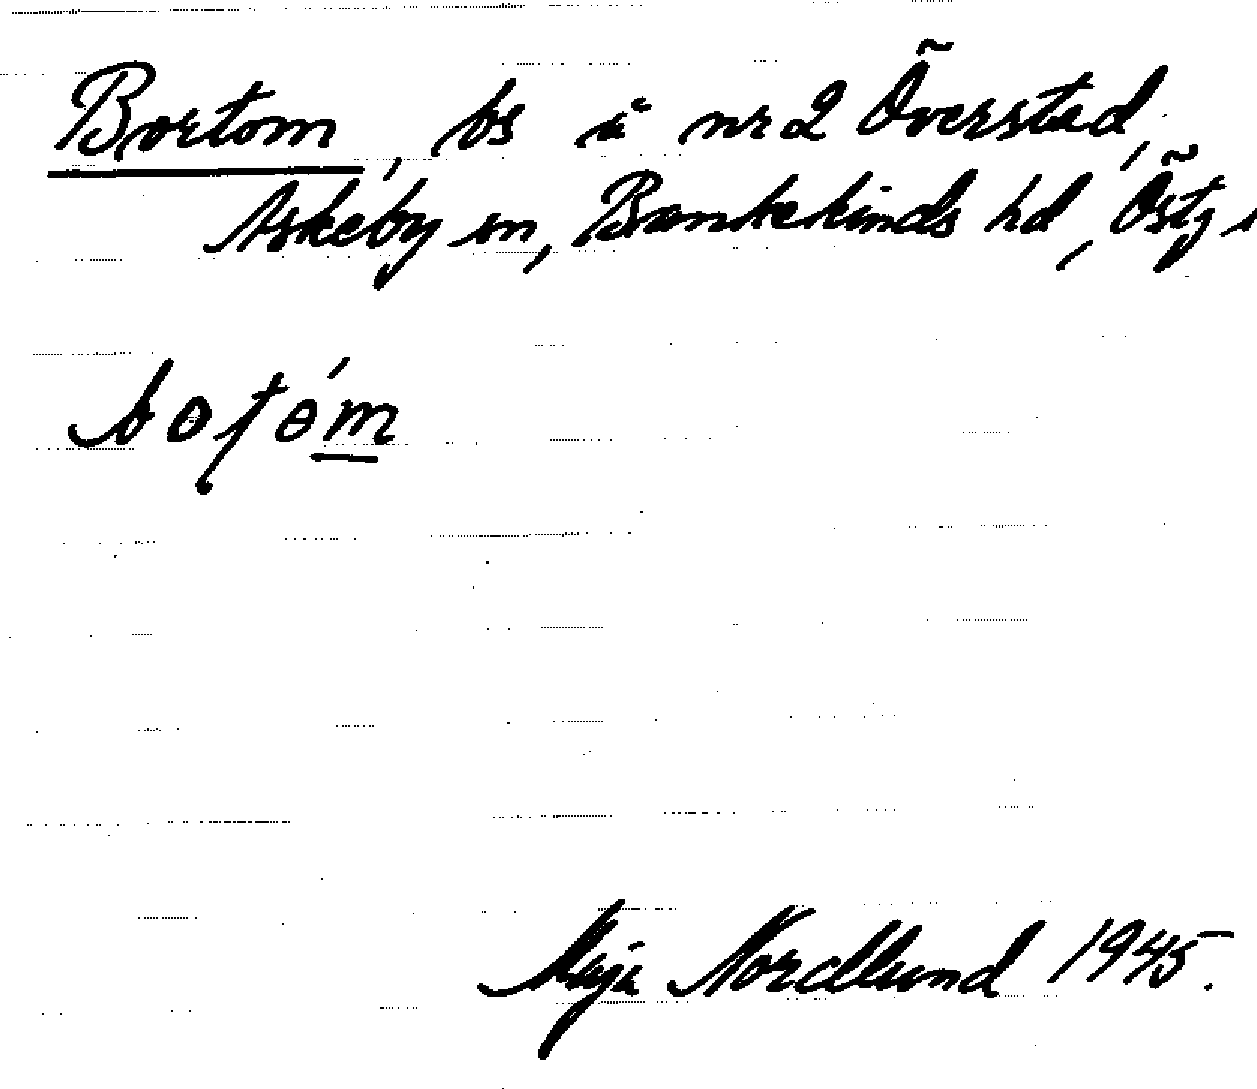 Bortom, bs i nr 2 Överstad,
Askeby sn, Bankekinds hd, Östg
botǿm
Maja Nordlund 1945.